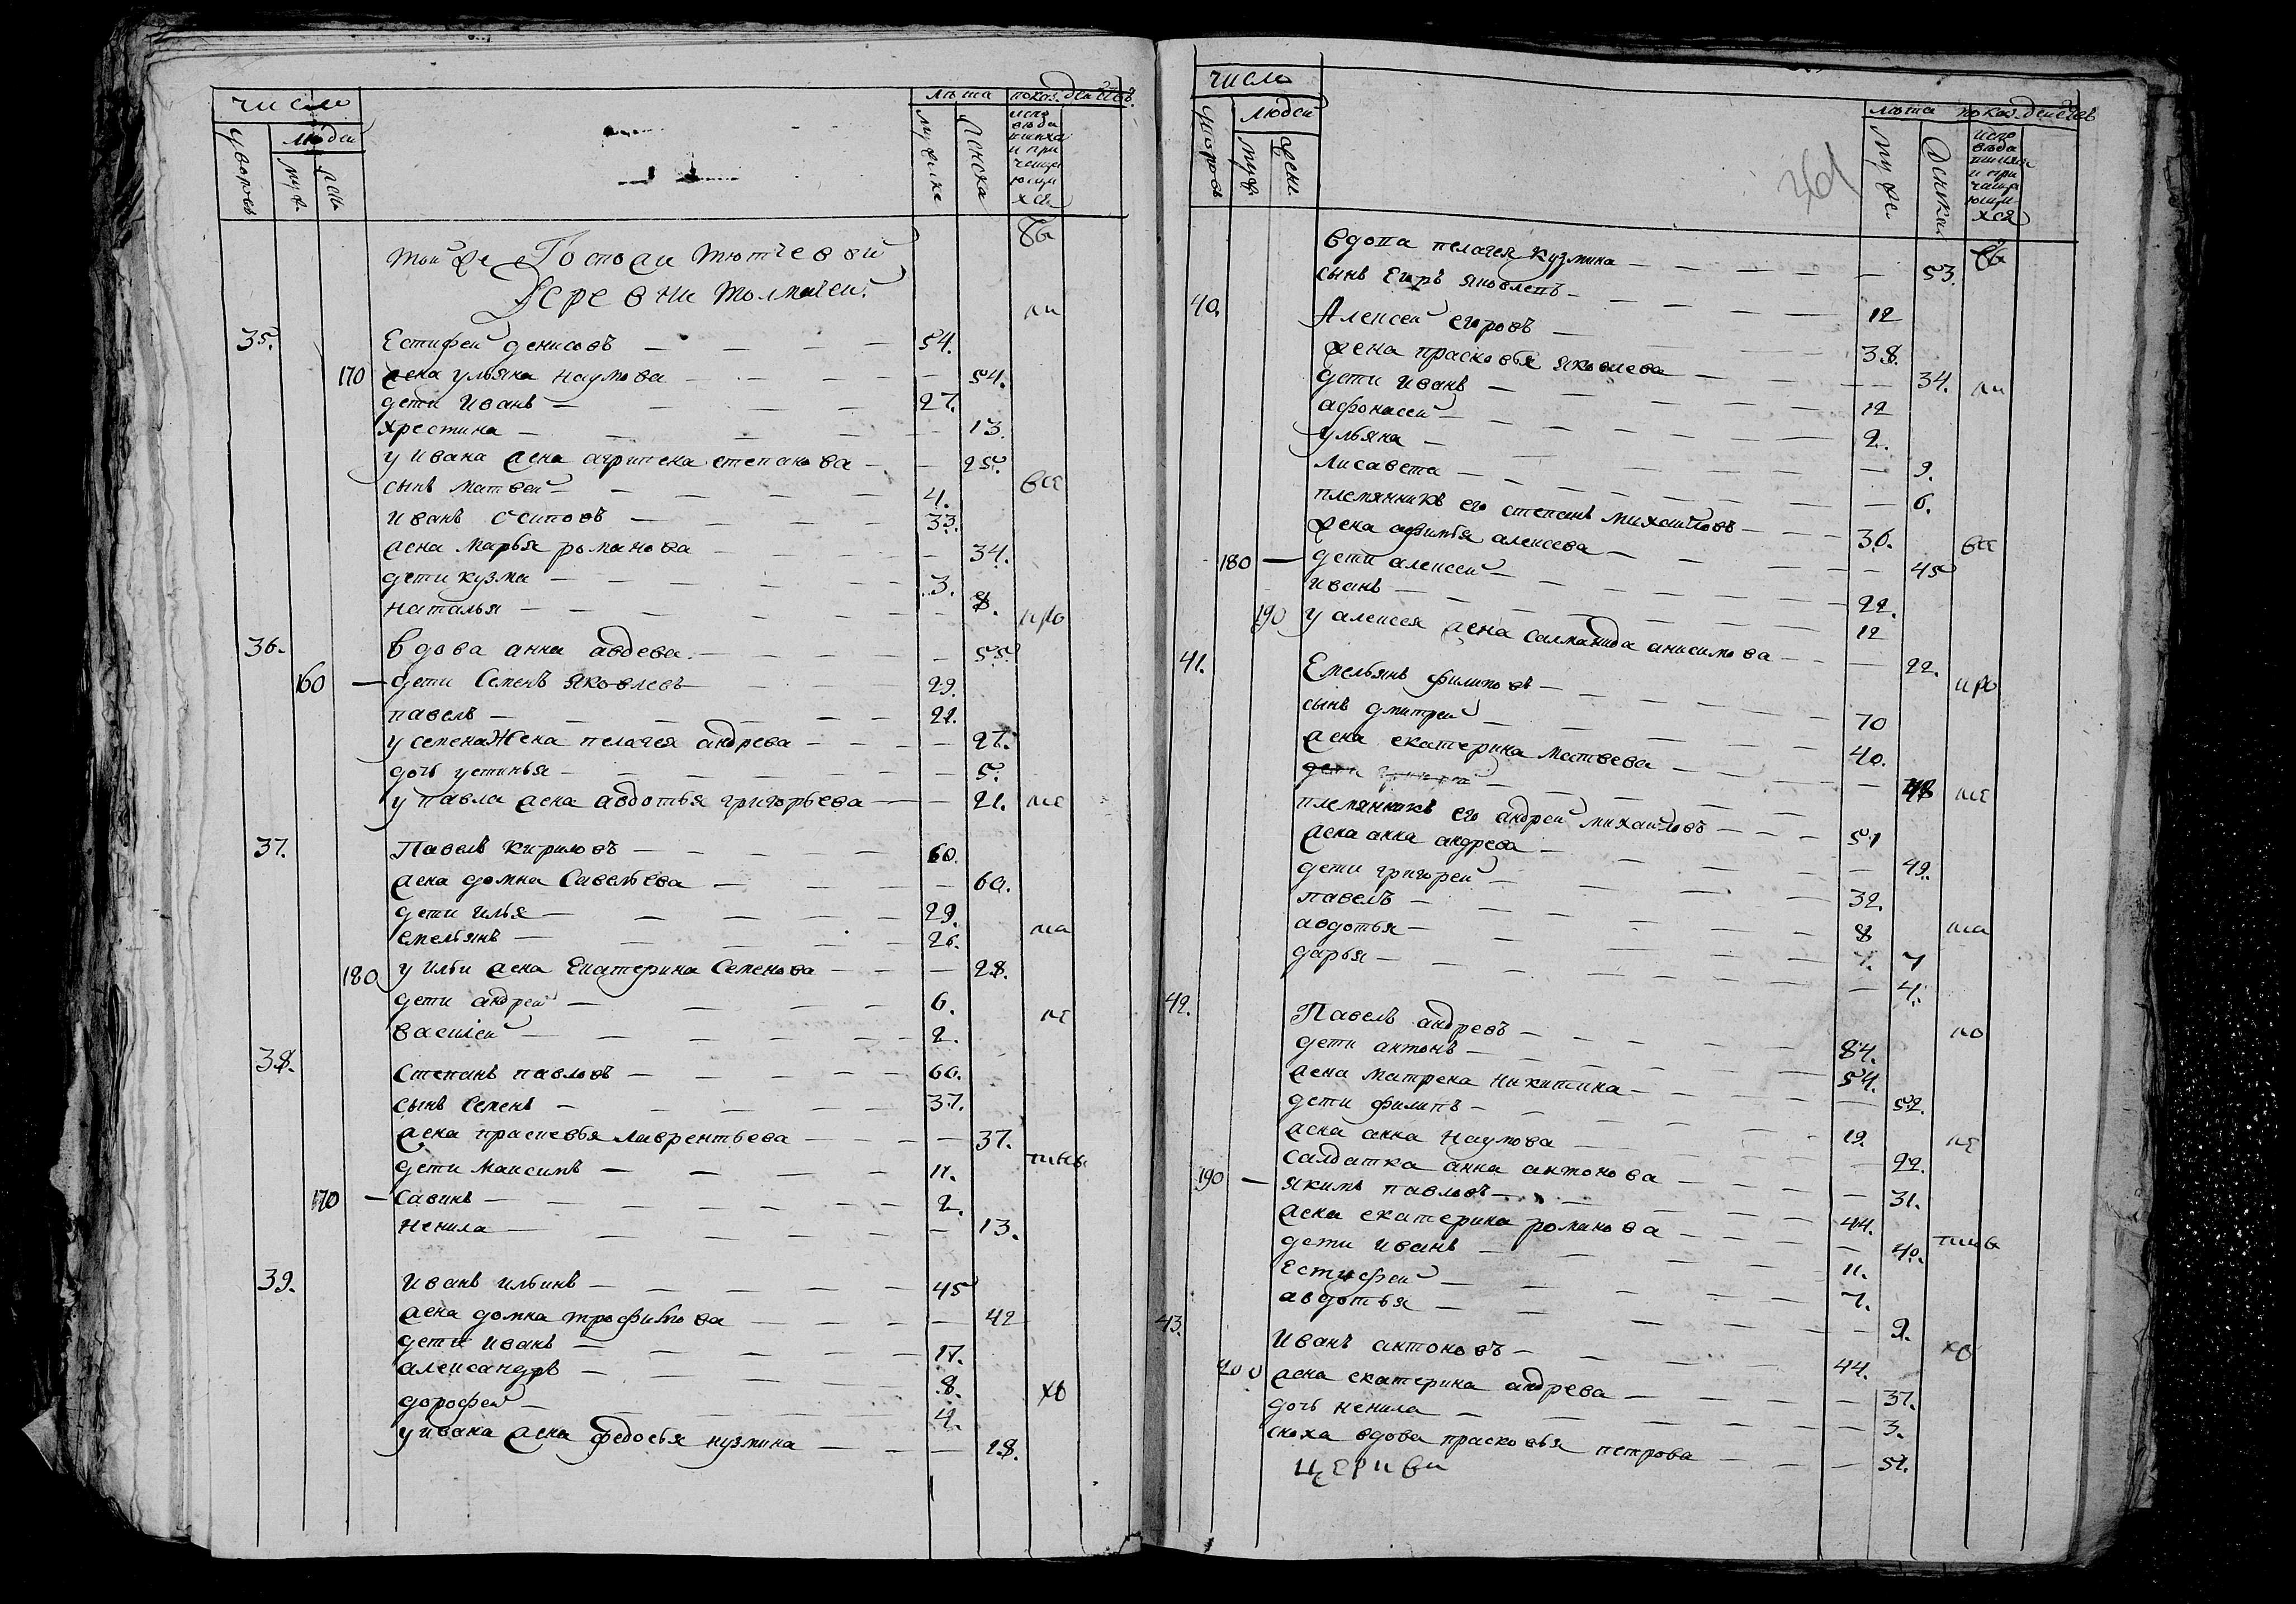 число
лѣта показ. действ.
дворовъ
людей
муж.
жен.
мужска
женска
испо
вѣда
ющихся
и при
чаща
ющи
хся
Той же Госпожи Тютчевой
Деревни Толмачеи.
бы
ли
35. Естифей денисовъ — 54.
170 жена ульяна наумова — 54.
дети Иванъ — 27.
хрестина — 13.
у ивана жена агрипена степанова — 25.
сынъ матвей — 4. все
иванъ осиповъ — 33.
жена марья романова — 34.
дети кузма — 3.
наталья — 8. про
36. вдова анна авдеева — 55.
160 — дети Семенъ яковлевъ — 29.
павелъ — 22.
у семена Жена пелагея андрева — 27.
дочь устинья — 5.
у павла жена авдотья григорьева — 21. ше
37. Павелъ кириловъ — 60.
жена домна Савельева — 60.
дети илья — 29.
емельянъ — 26. ша
180 у ильи жена Екатерина Семенова — 28.
дети андрей — 6.
василей — 2. не
38. Степанъ павловъ — 60.
сынъ Семенъ — 37.
жена прасковья лаврентьева — 37.
дети максимъ — 11.
170 — Савинъ — 2.
ненила — 13.
39. Иванъ ильинъ — 45
жена домна трофимова — 42
дети иванъ — 17.
александръ — 8.
дорофей — 4. хв
у ивана жена федосья кузмина — 18.
число
лѣта показ. действ.
дворовъ
людей
муж.
жен.
муже
женска
испо
вѣда
и при
чаща
ющи
хся
261
вдова пелагея кузмина — 53. бы
сынъ Егоръ яковлевъ — 12
40. Алексей егоровъ — 38.
жена прасковья яковлева — 34. ли
дети иванъ — 12
афонасей — 2.
ульяна — 9.
лисавета — 6.
племянникъ его степанъ михайловъ — 36. все
жена афимья алексева — 45
180 — дети алексей — 22.
иванъ — 12
190 у алексея жена саламанида анисимова — 22.
41. Емельянъ филиповъ — 70 про
сынъ дмитрей — 40.
жена екатерина матвеева — 48 ше
племянникъ его андрей михайловъ — 51
жена анна андрева — 49.
дети григорей — 32.
павелъ — 8 ша
авдотья — 7
дарья — 4.
42. Павелъ андревъ — 84. но
дети антонъ — 54.
жена матрена никитина — 52.
дети филипъ — 19. не
жена анна наумова — 22.
салдатка анна антонова — 31.
190 — якимъ павловъ — 44.
жена екатерина романова — 40.
дети иванъ — 11.
Естифей — 7.
авдотья — 9.
43. Иванъ антоновъ — 44. хо
200 жена екатерина андрева — 37.
дочь ненила — 3.
сноха вдова прасковья петрова — 52.
церкви